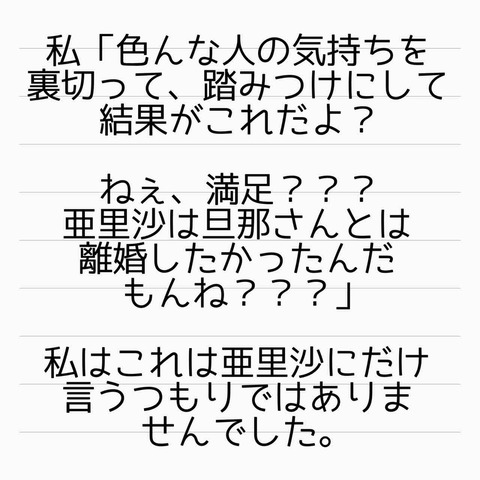 私「色んな人の気持ちを
裏切って、踏みつけにして
結果がこれだよ？
ねぇ、満足？？？
亜里沙は旦那さんとは
離婚したかったんだ
もんね？？？」
私はこれは亜里沙にだけ
言うつもりではありま
せんでした。